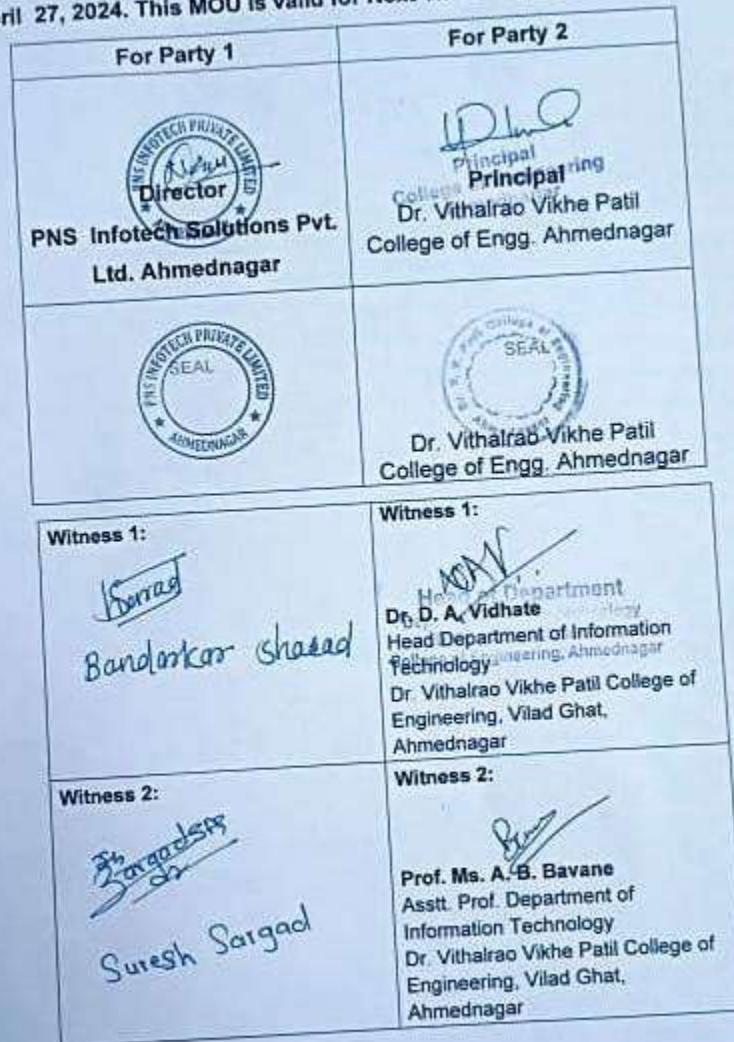 ril 27, 2024. This MOU is valid for
For Party 1
For Party 2
PNS INFOTECH PRIVATE LIMITED
Director
PNS Infotech Solutions Pvt.
Ltd. Ahmednagar
Principal
Principal
College ring
Dr. Vithalrao Vikhe Patil
College of Engg. Ahmednagar
PNS INFOTECH PRIVATE LIMITED
SEAL
AHMEDNAGAR
College of Engineering
SEAL
Dr. Vithalrao Vikhe Patil
College of Engg. Ahmednagar
Witness 1:
Bandarkar Sharad
Witness 1:
Head of Department
Dr. D. A. Vidhate
Head Department of Information
Technology
Engineering, Ahmednagar
Dr. Vithalrao Vikhe Patil College of
Engineering, Vilad Ghat,
Ahmednagar
Witness 2:
Suresh Sargad
Witness 2:
Prof. Ms. A. B. Bavane
Asstt. Prof. Department of
Information Technology
Dr. Vithalrao Vikhe Patil College of
Engineering, Vilad Ghat,
Ahmednagar